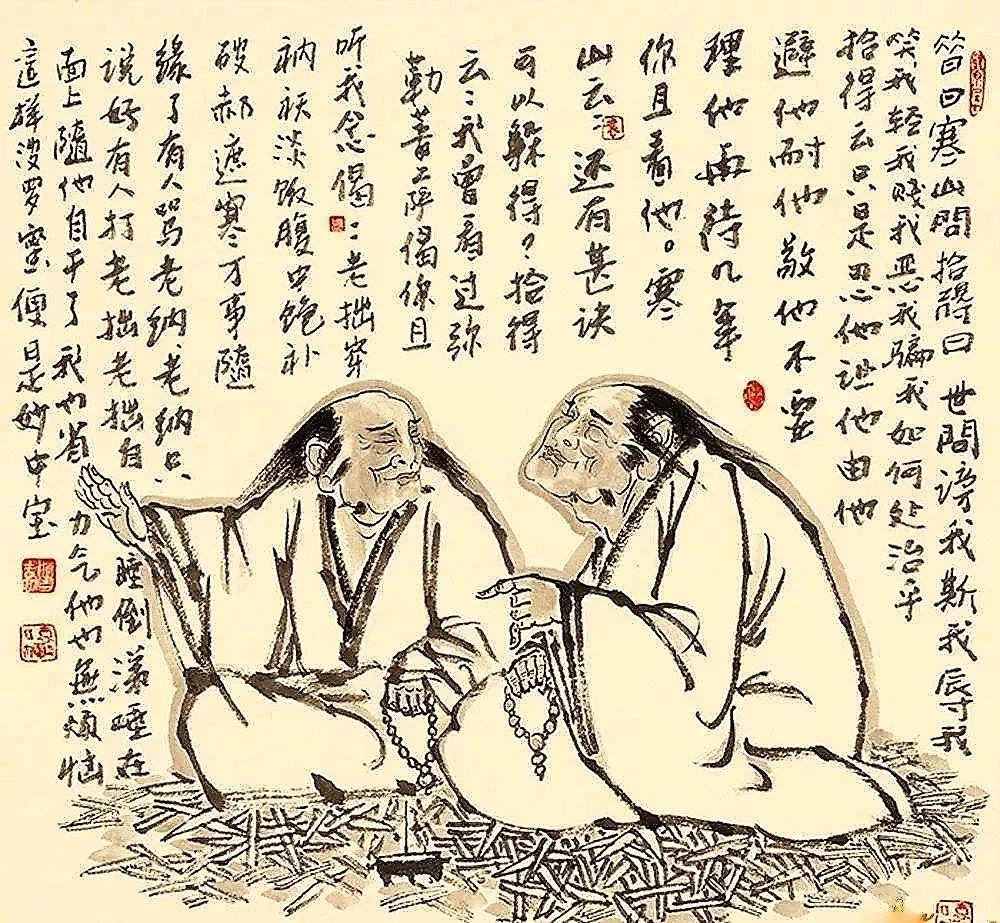 昔日寒山問拾得曰世間謗我斯我辱我
笑我轻我贱我恶我骗我如何处治乎
拾得云只是忍他让他由他
避他耐他敬他不要
理他再待几年
你且看他。寒
山云：还有甚诀
可以躲得？拾得
云：我曾看过弥
勒菩萨偈你且
听我念偈：老拙穿
衲袄淡饭腹中饱补
破郝遮寒万事隨
缘了有人骂老纳、老纳只
说好有人打老拙老拙自睡倒涕唾在
面上隨他自干了我也省力气他也無烦恼
這样波罗蜜便是妙中宝